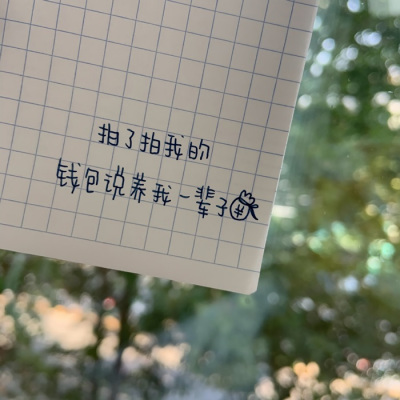 拍了拍我的
钱包说养我一辈子